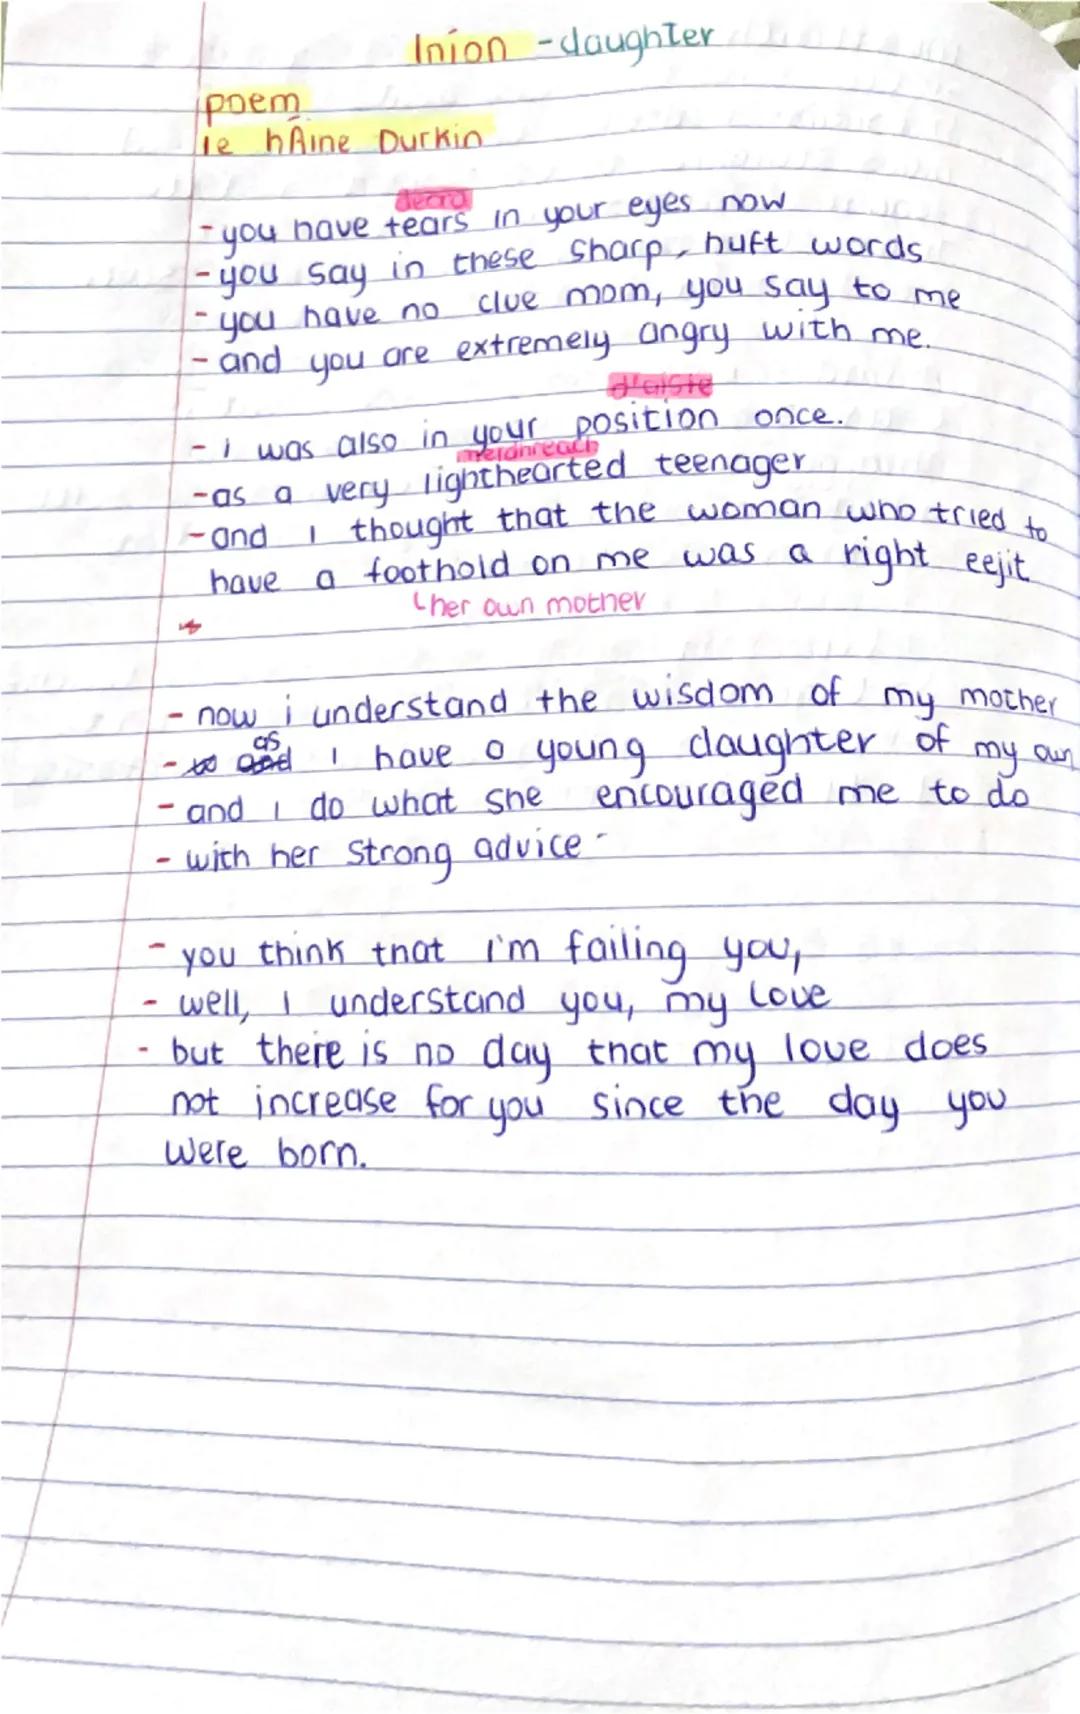 Iníon - daughter
poem
le hÁine Durkin
deora
- you have tears in your eyes now
- you say in these sharp, huft words
- you have no clue mom, you say to me
- and you are extremely angry with me.
d'aiste
- i was also in your position once.
meidhreach
- as a very lighthearted teenager
- and i thought that the woman who tried to
have a foothold on me was a right eejit
her own mother
- now i understand the wisdom of my mother
as
- I have a young daughter of my own
- and I do what she encouraged me to do
- with her strong advice -
- you think that I'm failing you,
- well, I understand you, my love
- but there is no day that my love does
not increase for you since the day you
were born.